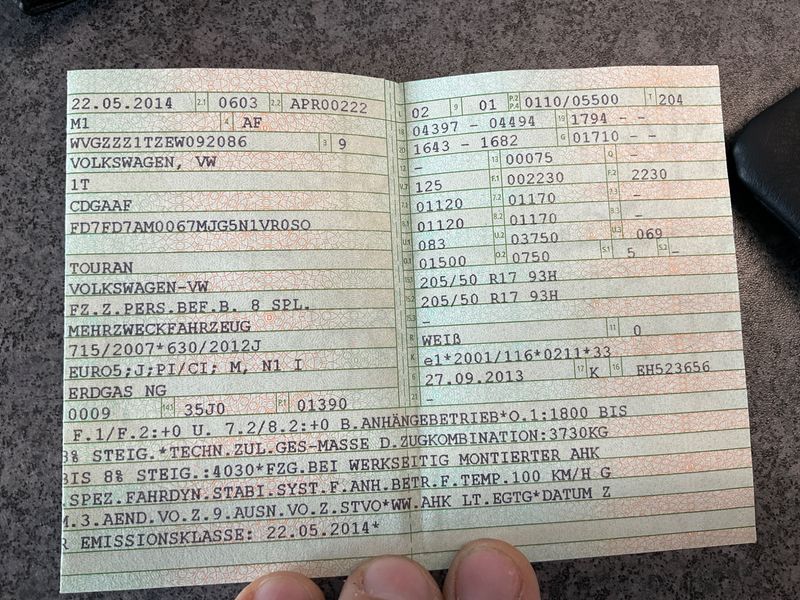 22.05.2014 2.1 0603 2.2 APR00222
M1 4 AF
WVGZZZ1TZEW092086 3 9
VOLKSWAGEN, VW
1T
CDGAAF
FD7FD7AM0067MJG5N1VR0SO
TOURAN
VOLKSWAGEN-VW
FZ.Z.PERS.BEF.B. 8 SPL.
MEHRZWECKFAHRZEUG
715/2007*630/2012J
EURO5;J;PI/CI; M, N1 I
ERDGAS NG
0009 14.1 35J0 P.1 01390
02 9 01 P.2 P.4 0110/05500 T 204
18 04397 - 04494 19 1794 - -
20 1643 - 1682 G 01710 - -
12 - 13 00075 Q -
V.7 125 F.1 002230 F.2 2230
7.1 01120 7.2 01170 7.3 -
8.1 01120 8.2 01170 8.3 -
U.1 083 U.2 03750 U.3 069
O.1 01500 O.2 0750 S.1 5 S.2 -
205/50 R17 93H
205/50 R17 93H
-
R WEIß 11 0
K e1*2001/116*0211*33
6 27.09.2013 17 K 16 EH523656
21 -
F.1/F.2:+0 U. 7.2/8.2:+0 B.ANHÄNGEBETRIEB*O.1:1800 BIS
8% STEIG.*TECHN.ZUL.GES-MASSE D.ZUGKOMBINATION:3730KG
BIS 8% STEIG.:4030*FZG.BEI WERKSEITIG MONTIERTER AHK
SPEZ.FAHRDYN.STABI.SYST.F.ANH.BETR.F.TEMP.100 KM/H G
M.3.AEND.VO.Z.9.AUSN.VO.Z.STVO*WW.AHK LT.EGTG*DATUM Z
R EMISSIONSKLASSE: 22.05.2014*